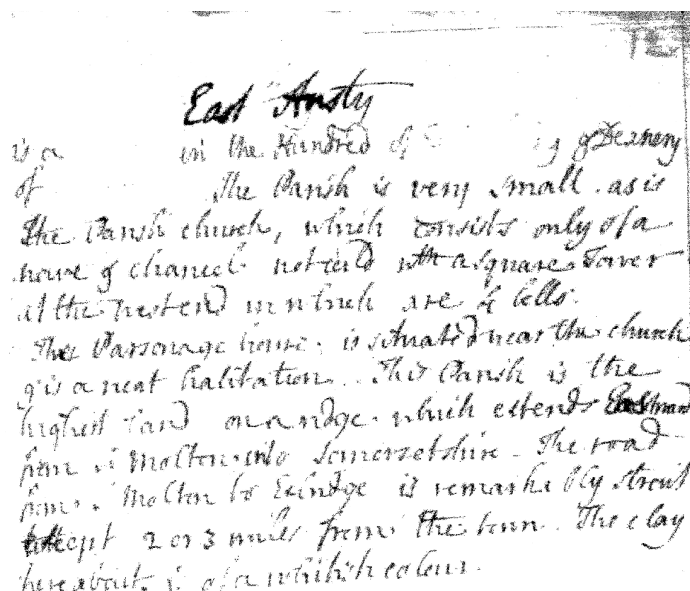 East Ansty
is a in the Hundred of & Deanery
of The Parish is very small as is
the Parish church, which consists only of a
nave & chancel not ceild wth a square Tower
at the west end in which are 4 bells.
The Parsonage house is situated near the church
& is a neat habitation. This Parish is the
highest land on a ridge which extends Eastward
from Molton into Somersetshire. The road
from Molton to is remarkably
except 2 or 3 miles from the town. The clay
hereabouts is of a whitish colour.